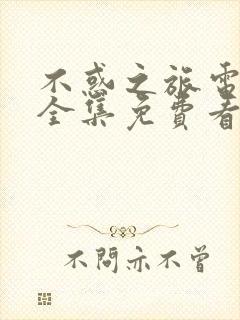 不惑之旅電
全集免費看
不問亦不曾